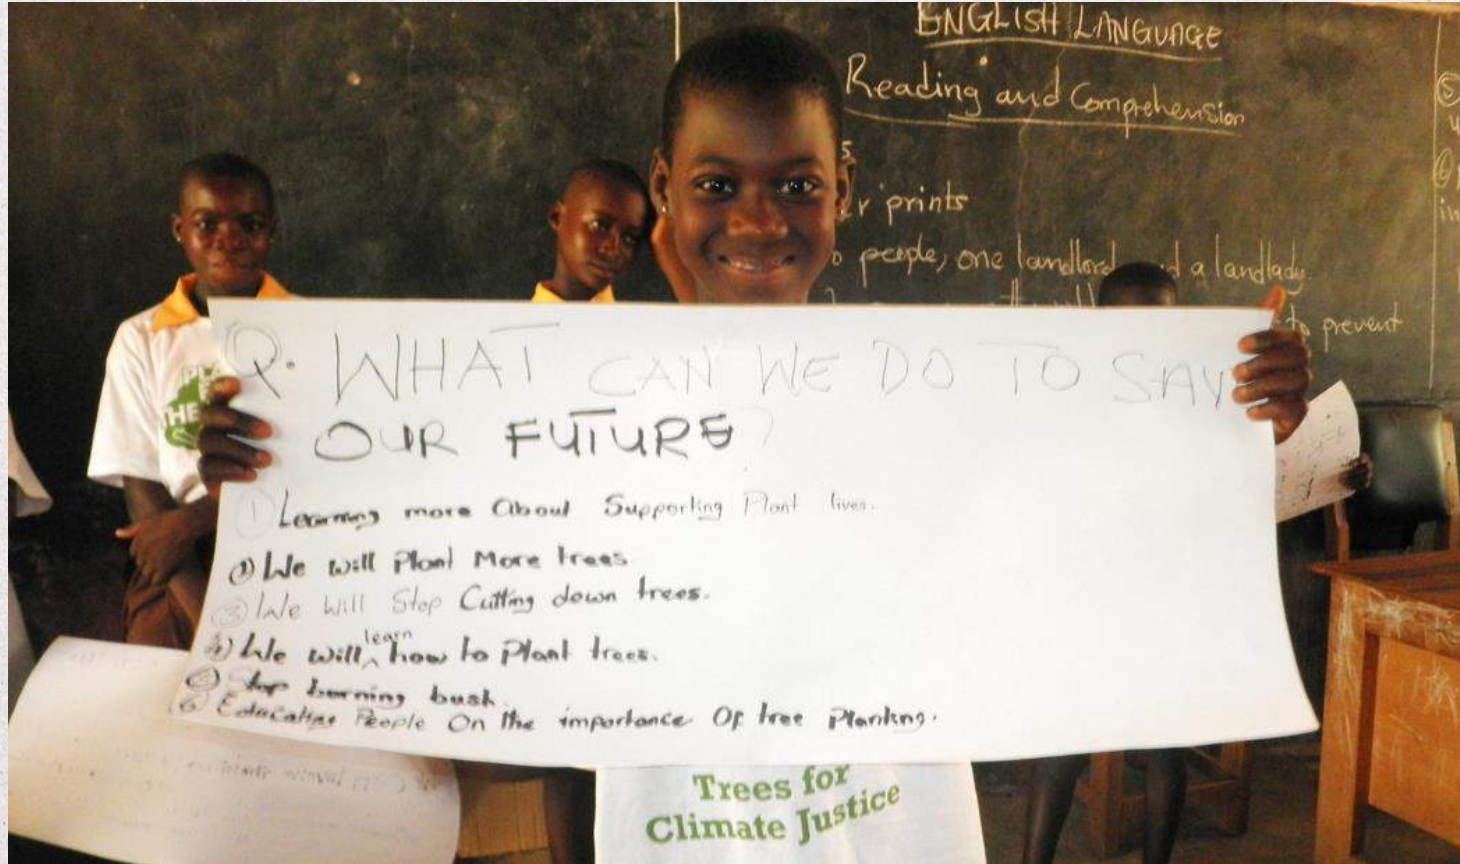 ENGLISH LANGUAGE
Reading and Comprehension
s.
r prints
people, one landlord a landlady
to prevent
5
6
in
THE
Q. WHAT CAN WE DO TO SAV
OUR FUTURE?
1 Learning more About Supporting Plant lives.
2) We will Plant More trees.
3 We Will Stop Cutting down trees.
4) We will learn how to Plant trees.
5 Stop burning bush.
6 Educating People On the importance Of tree Planting.
Trees for
Climate Justice